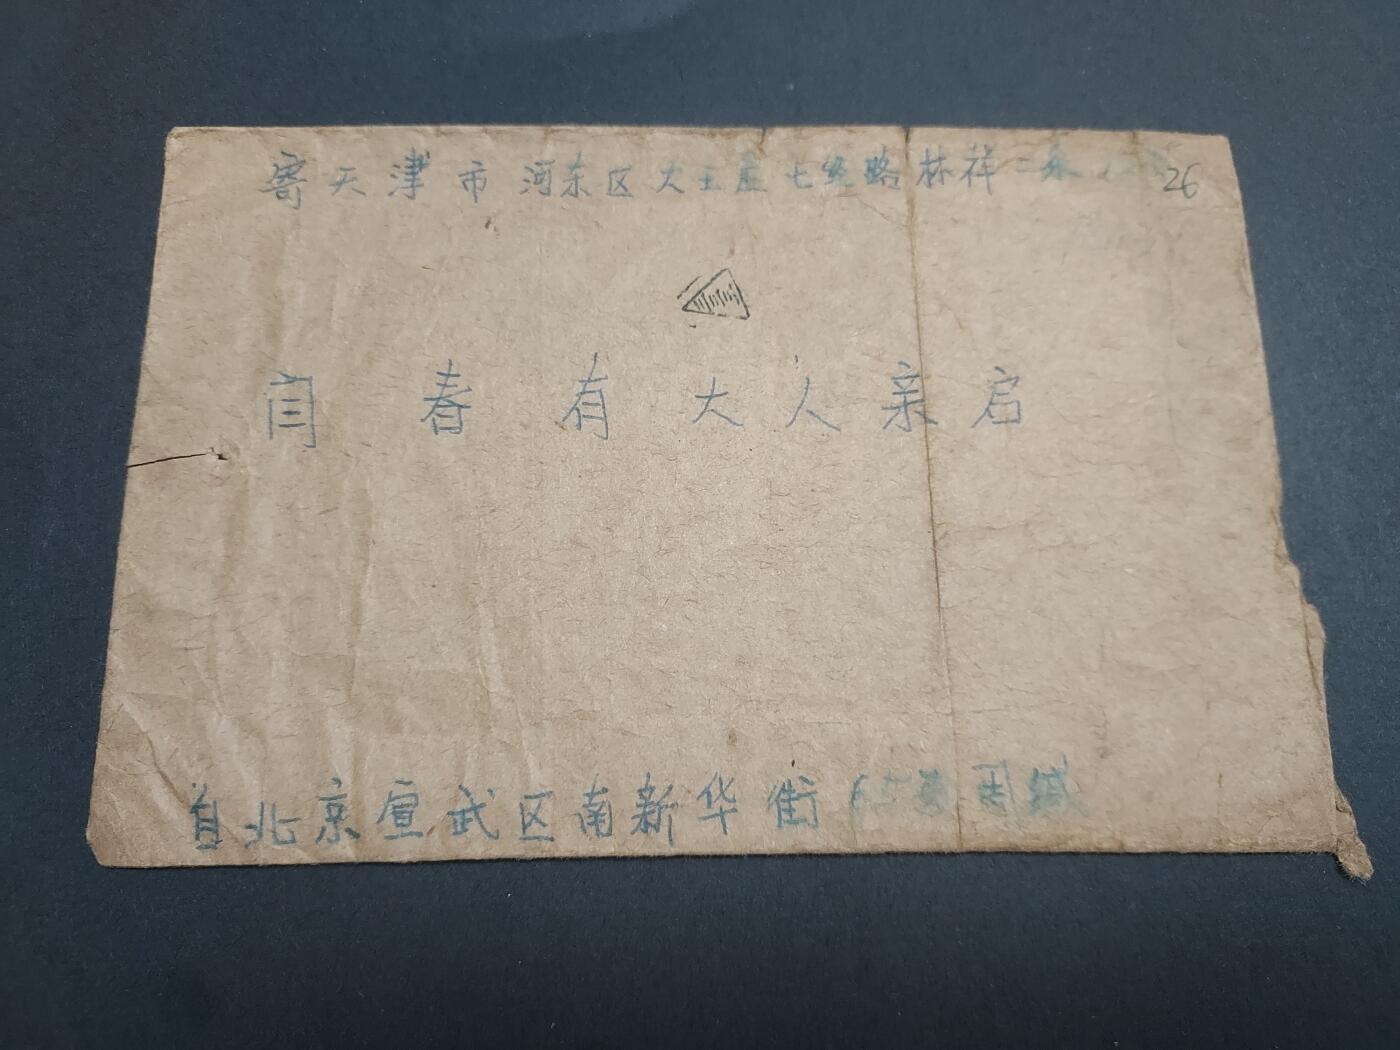 寄天津市河东区大王庄七经路林祥二条 26
周春有大人亲启
自北京宣武区南新华街 号周缄